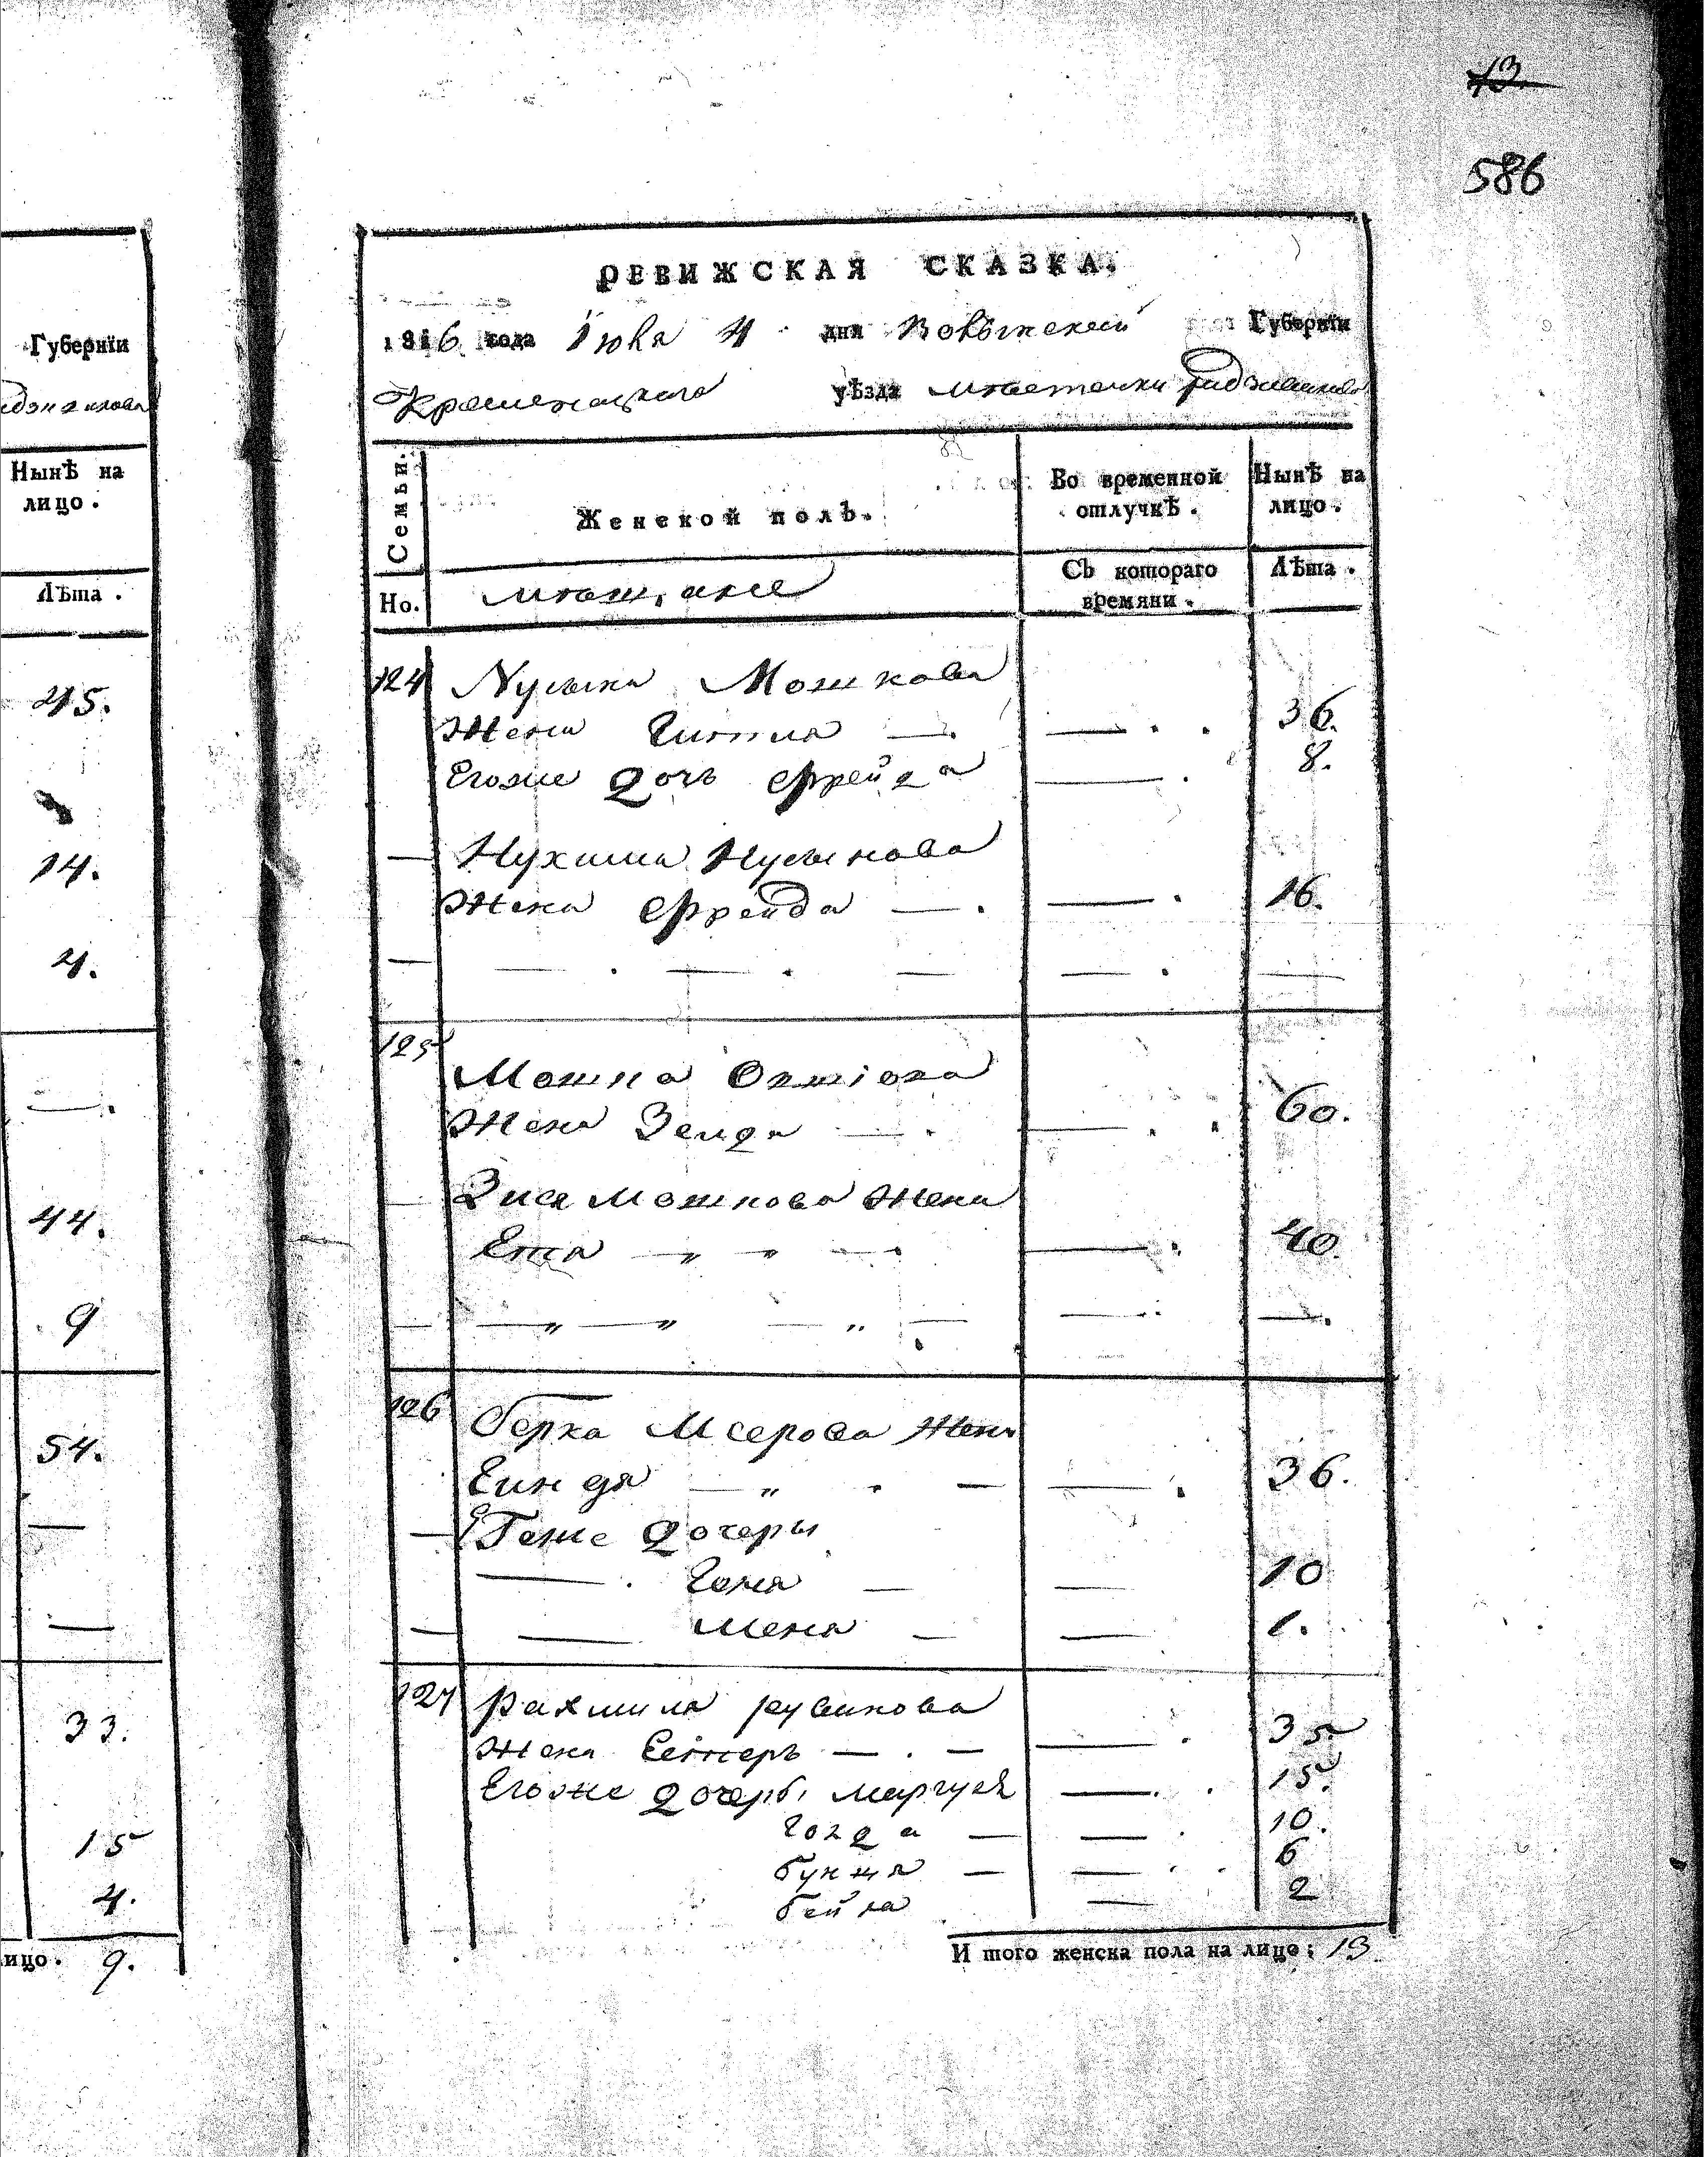 13.
586
Губернїи
Нынѣ на
лицо.
Лѣта.
45.
14.
4.
44.
9
54.
33.
15
4.
лицо. 9.
РЕВИЖСКАЯ СКАЗКА.
1816 года Iюня 4 дня Волынской Губернїи
Кременецкаго уѣзда местечки Радзивилова
Семьи.
Женской полъ.
Во временной
отлучкѣ.
Нынѣ на
лицо.
Но.
мещане
Съ котораго
времяни.
Лѣта.
124 Нусына Мошкова
Жена Гитля 36.
Егоже дочь Фрейда 8.
Нухима Нусынова
Жена Фрейда 16.
125
Мошка
Жена Зелда 60.
Зися Мошкова Жена
Ета 40.
126 Берка Меерова Жена
Гиндя 36.
Егоже дочеры
Геня 10
Меня 1.
127 Рахмиля Рувинова
Жена Естеръ 35
Егоже дочеры Маргуля 15.
Голда 10.
Бунця 6
Бейла 2
И того женска пола на лицо: 13